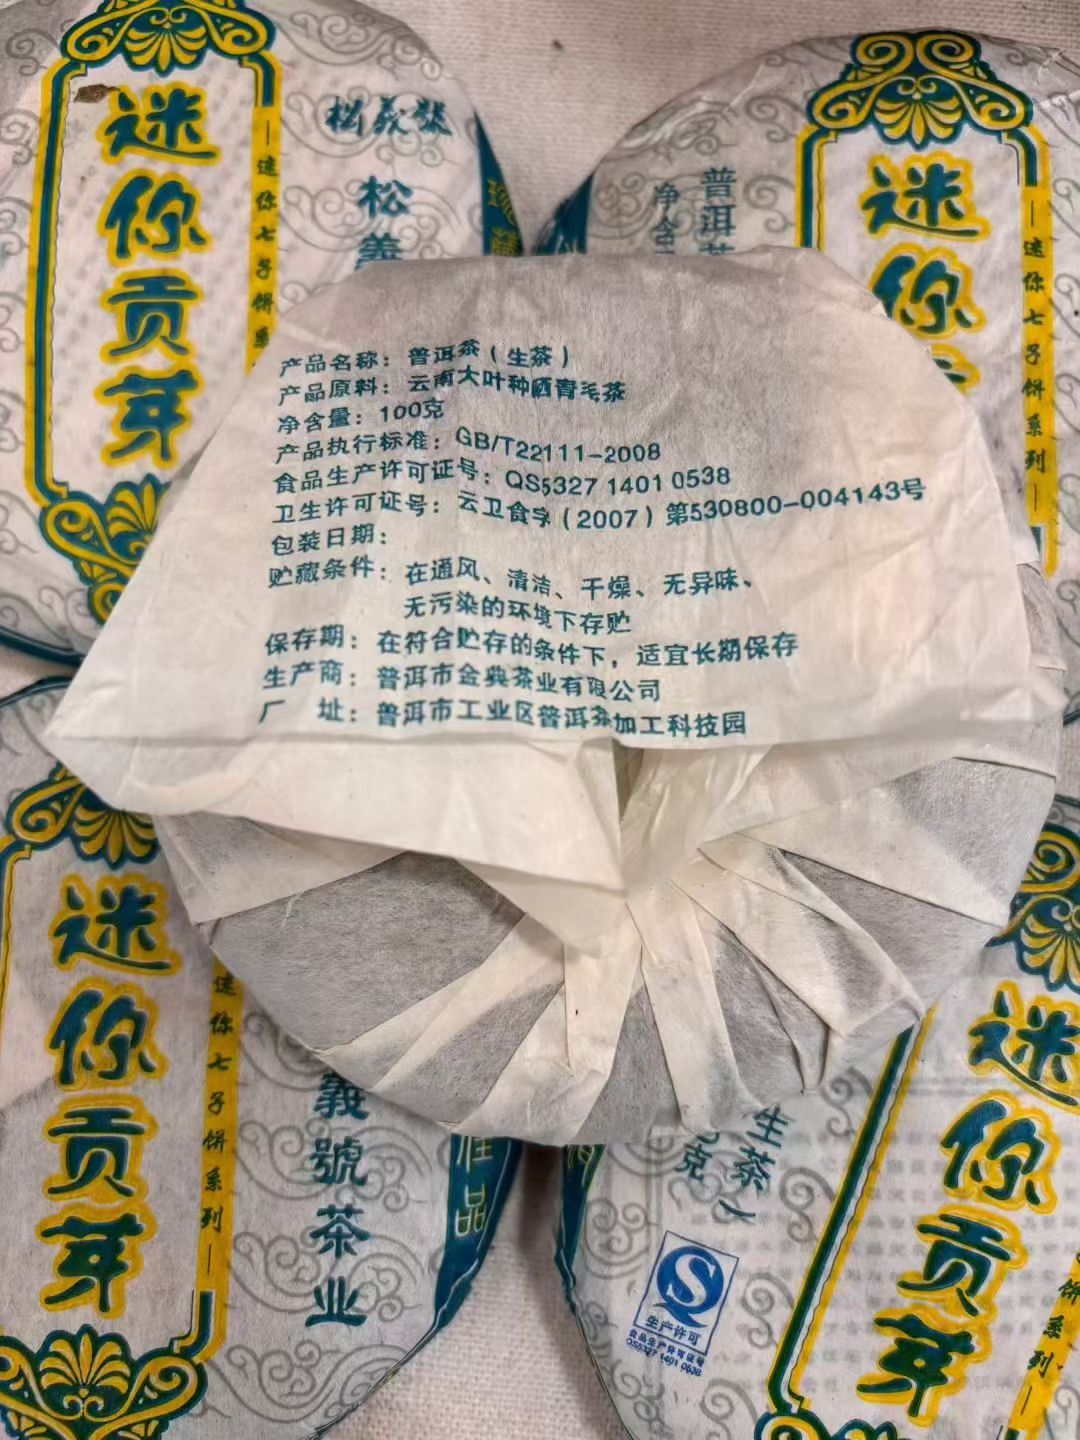 迷你贡芽
—迷你七子饼系
松義號
松義
珍藏
普洱茶
净含
迷你
—迷你七子饼系列—
产品名称：普洱茶（生茶）
产品原料：云南大叶种晒青毛茶
净含量：100克
产品执行标准：GB/T22111-2008
食品生产许可证号：QS5327 1401 0538
卫生许可证号：云卫食字（2007）第530800-004143号
包装日期：
贮藏条件：在通风、清洁、干燥、无异味、
无污染的环境下存贮
保存期：在符合贮存的条件下，适宜长期保存
生产商：普洱市金典茶业有限公司
厂 址：普洱市工业区普洱茶加工科技园
迷你贡芽
迷你七子饼系列—
義號茶业
佳品
生茶）
克
生产许可
食品生产许可证号
QS5327 1401 0538
迷你贡芽
饼系列—